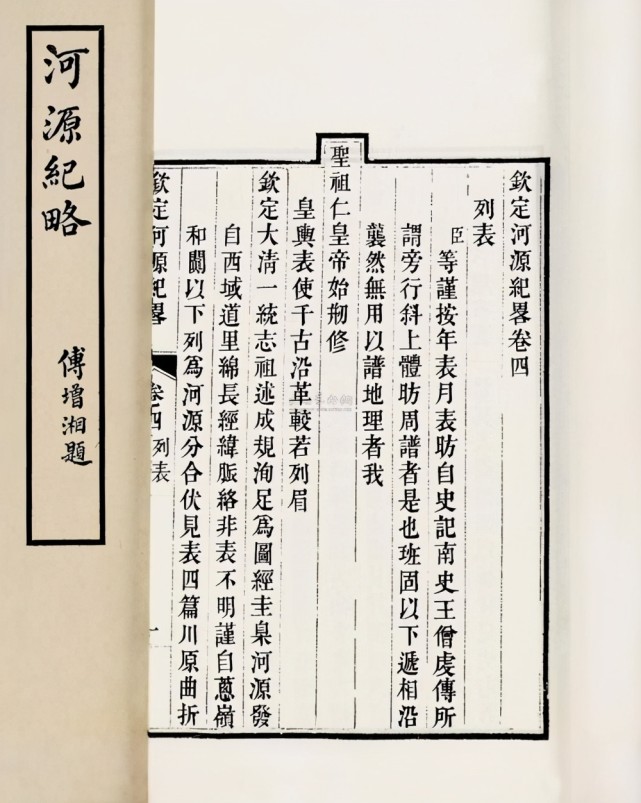 河源紀略
傅增湘題
欽定河源紀畧卷四
列表
臣等謹按年表月表昉自史記南史王僧虔傳所
謂旁行斜上體昉周譜者是也班固以下遞相沿
襲然無用以譜地理者我
聖祖仁皇帝始剏修
皇輿表使千古沿革較若列眉
欽定大清一統志祖述成規洵足爲圖經圭臬河源發
自西域道里綿長經緯脈絡非表不明謹自蔥嶺
和闐以下列爲河源分合伏見表四篇川原曲折
欽定河源紀畧
卷四 列表
一